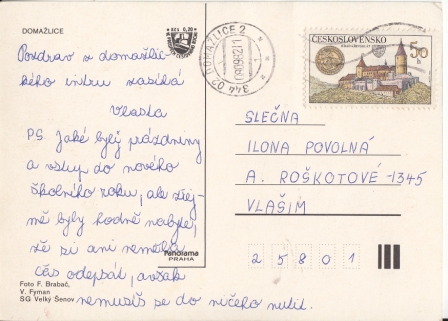 DOMAŽLICE
Kčs 0,30
Pozdrav z domažlic-
kého intru zasílá
Vlasta
PS. Jaké byly prázdniny
a vstup do nového
školního roku, ale zřej-
mě byly hodně nabyle,
že si ani neměla
čas odepsat, avšak
nemusíš se do ničeho nutit.
Foto F. Brabač,
V. Fyman
SG Velký Šenov
Panorama
PRAHA
344 02 DOMAŽLICE 2
ČESKOSLOVENSKO
50 h
SLEČNA
ILONA POVOLNÁ
A. ROŠKOTOVÉ-1345
VLAŠIM
25801